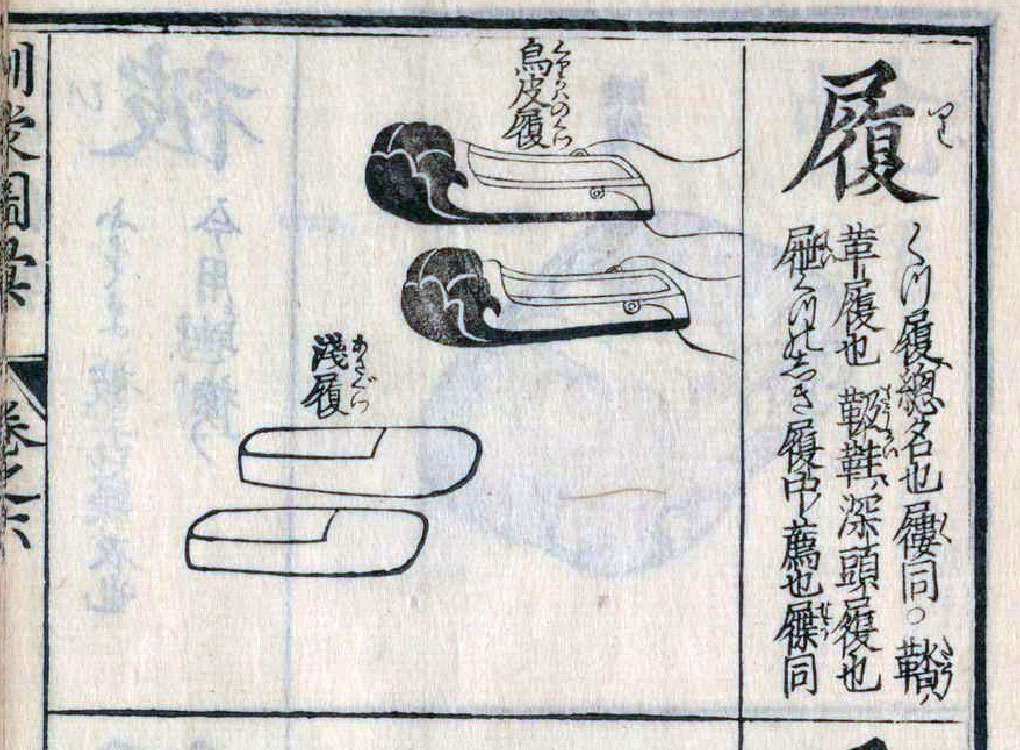 履
り
くつ履總名也屨同。鞜
革履也 靸鞋深頭履也
屜くつのしき履中薦也屧同
烏皮履
くりかはのくつ
淺履
あさぐつ
訓蒙圖彙 卷之六